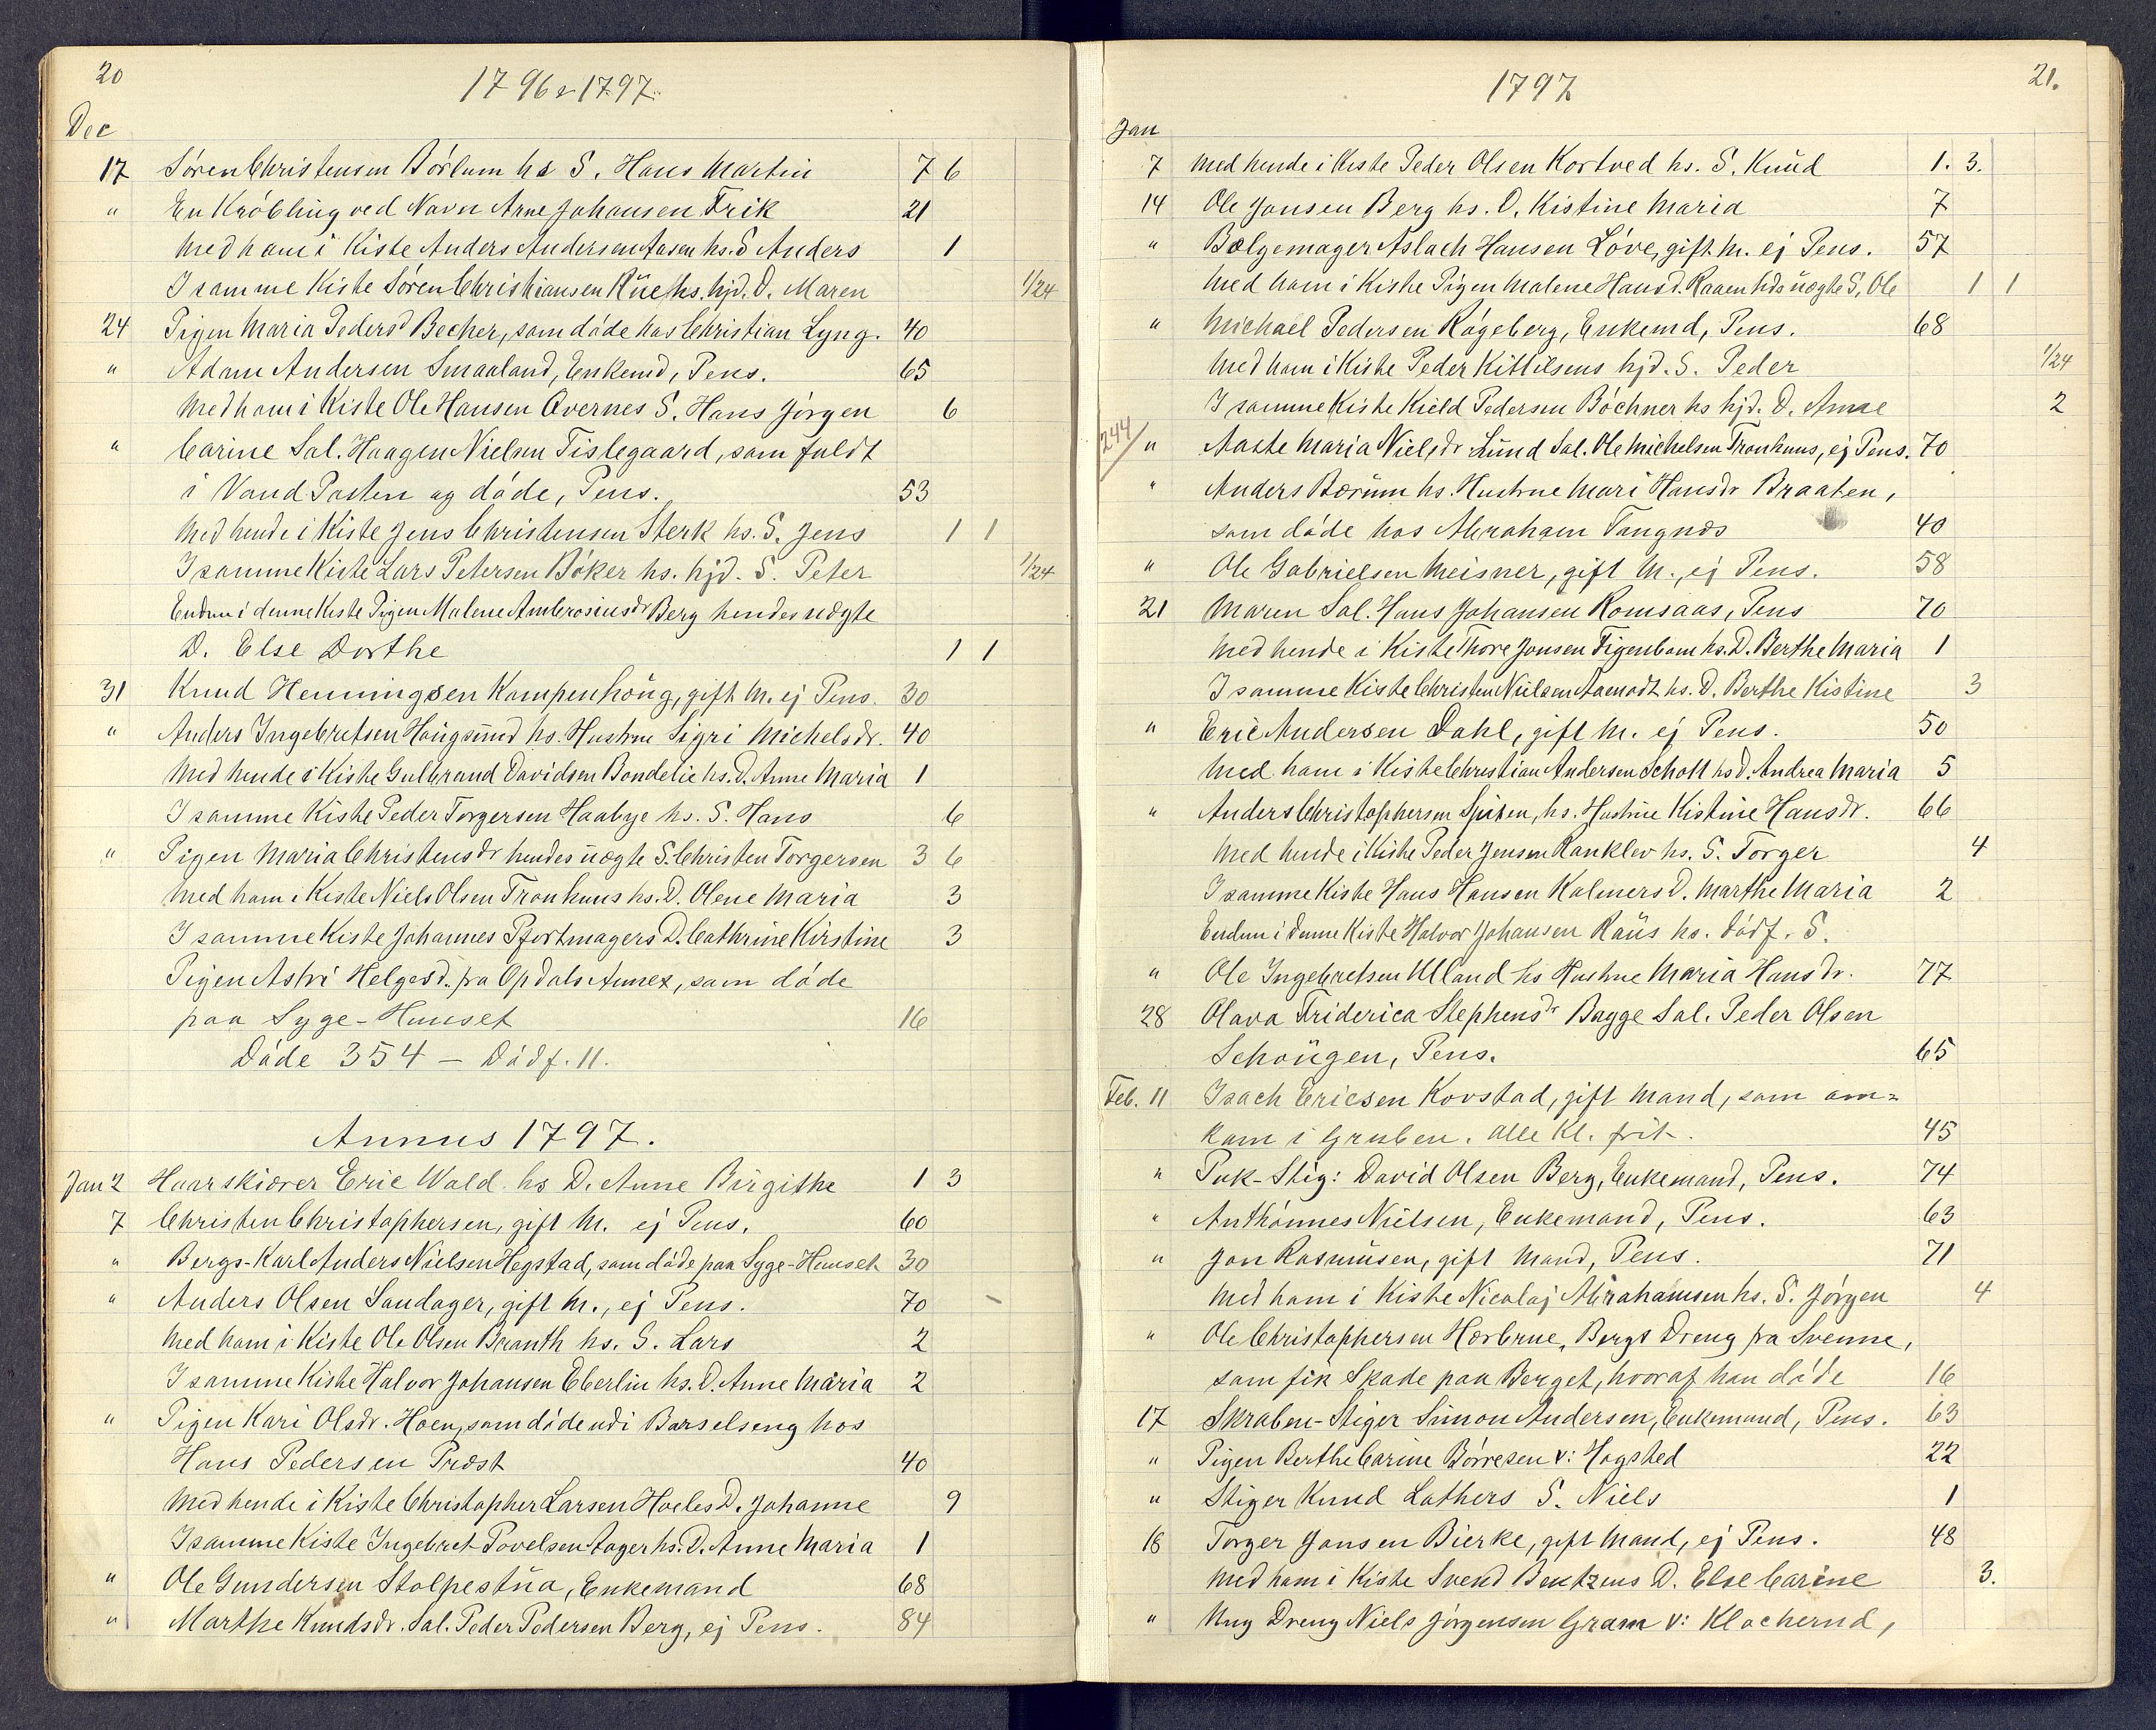 20
1796 & 1797.
Dec
17 Sören Christensen Börlum hs S. Hans Martin 7 6
" En Kröbling ved Navn Arne Johansen Frik 21
Med ham i Kiste Anders Andersen Aasen hs. S Anders 1
I samme Kiste Sören Christiansen Rües hs. hjd. D. Maren 1/24
24 Pigen Maria Pedersd Becher, som döde hos Christian Lyng. 40
" Adam Andersen Smaaland, Enkemd, Pens. 65
Med ham i Kiste Ole Hansen Overnes S. Hans Jörgen 6
" Carine Sal. Haagen Nielsen Tislegaard, som faldt
i Vand Posten og döde, Pens. 53
Med hende i Kiste Jens Christensen Sterk hs. S. Jens 1 1
I samme Kiste Lars Petersen Böker hs. hjd. S. Peter 1/24
Endnu i denne Kiste Pigen Malene Ambrosiusdr Berg hendes uægte
D. Else Dorthe 1 1
31 Knud Henningsen Kampenhöug, gift M. ej Pens. 30
" Anders Ingebretsen Haugsund hs. Hustrue Sigri Michelsdr. 40
Med hende i Kiste Gulbrand Davidsen Bondelie hs. D. Anne Maria 1
I samme Kiste Peder Torgersen Haabye hs. S. Hans 6
" Pigen Maria Christensdr hendes uægte S. Christen Torgersen 3 6
Med ham i Kiste Niels Olsen Tronhuus hs. D. Olene Maria 3
I samme Kiste Johannes Pfortmagers D. Cathrine Kirstine 3
Pigen Astri Helgesd. fra Opdals Annex, som döde
paa Syge-Huuset 16
Döde 354 – Dödf. 11.
Annus 1797.
Jan 2 Haarskiærer Eric Wald hs D. Anne Birgithe 1 3
7 Christen Christophersen, gift M. ej Pens. 60
" Bergs-Karl Anders Nielsen Hegstad, som döde paa Syge-Huuset 30
" Anders Olsen Sandager, gift M., ej Pens. 70 –
Med ham i Kiste Ole Olsen Branth hs. S. Lars 2
I samme Kiste Halvor Johansen Eberlin hs. D. Anne Maria 2
" Pigen Kari Olsdr. Hoen, som döde udi Barselseng hos
Hans Pedersen Præst 40
Med hende i Kiste Christopher Larsen Hoeles D. Johanne 9
I samme Kiste Ingebret Povelsen Aager hs. D. Anne Maria 1
" Ole Gundersen Stolpestüa, Enkemand 68
" Marthe Knudsdr. Sal. Peder Pedersen Berg, ej Pens. 84
1797
21.
Jan
7 Med hende i Kiste Peder Olsen Kortved hs. S. Knud 1. 3.
14 Ole Jonsen Berg hs. D. Kistine Maria 7
" Bælgemager Aslach Hansen Löve, gift M. ej Pens. 57
Med ham i Kiste Pigen Malene Hansd. Raaen hds uægte S. Ole 1 1
" Michael Pedersen Rögeberg, Enkemd, Pens. 68
Med ham i Kiste Peder Kittilsens hjd. S. Peder 1/24
I samme Kiste Kield Pedersen Böchner hs hjd. D. Anne 2
244
" Aaste Maria Nielsdr Lund Sal. Ole Michelsen Tronhuus, ej Pens. 70
" Anders Bærum hs. Hustrue Mari Hansdr Braaten,
som döde hos Abraham Tangnæs 40
" Ole Gabrielsen Meisner, gift M., ej Pens. 58
21 Maren Sal. Hans Johansen Romsaas, Pens 70
Med hende i Kiste Thore Jonsen Figenbom hs. D. Berthe Maria 1
I samme Kiste Christen Nielsen Aamodt hs. D. Berthe Kistine 3
" Eric Andersen Dahl, gift M. ej Pens. 50
Med ham i Kiste Christian Andersen Schott hs D. Andrea Maria 5
" Anders Christophersen Spiten, hs. Hustrue Kistine Hansdr. 66
Med hende i Kiste Peder Jensen Ranklev hs. S. Torger 4
I samme Kiste Hans Hansen Kalmers D. Marthe Maria 2
Endnu i denne Kiste Halvor Johansen Raüs hs. dödf. S.
" Ole Ingebretsen Ulland hs Hustrue Maria Hansdr. 77
28 Olava Friderica Stephensdr Bagge Sal. Peder Olsen
Schougen, Pens. 65
Feb. 11 Isach Ericsen Korstad, gift Mand, som om=
kom i Gruben. alle Kl. frit. 45
" Puk-Stig: David Olsen Berg, Enkemand, Pens. 74
" Anthönnes Nielsen, Enkemand, Pens. 63
" Jon Rasmusen, gift Mand, Pens. 71
Med ham i Kiste Nicolaj Abrahamsen hs. S. Jörgen 4
" Ole Christophersen Horbrue, Bergs Dreng fra Svenne,
som fik Skade paa Berget, hvoraf han döde 16
17 Skraben-Stiger Simon Andersen, Enkemand, Pens. 63
" Pigen Berthe Carine Börresen v: Hogsted 22
" Stiger Knud Lathers S. Niels 1
18 Torger Jonsen Bierke, gift Mand, ej Pens. 48
Med ham i Kiste Svend Bentzens D. Else Carine 3.
" Ung Dreng Niels Jörgensen Gram v: Klochernd,